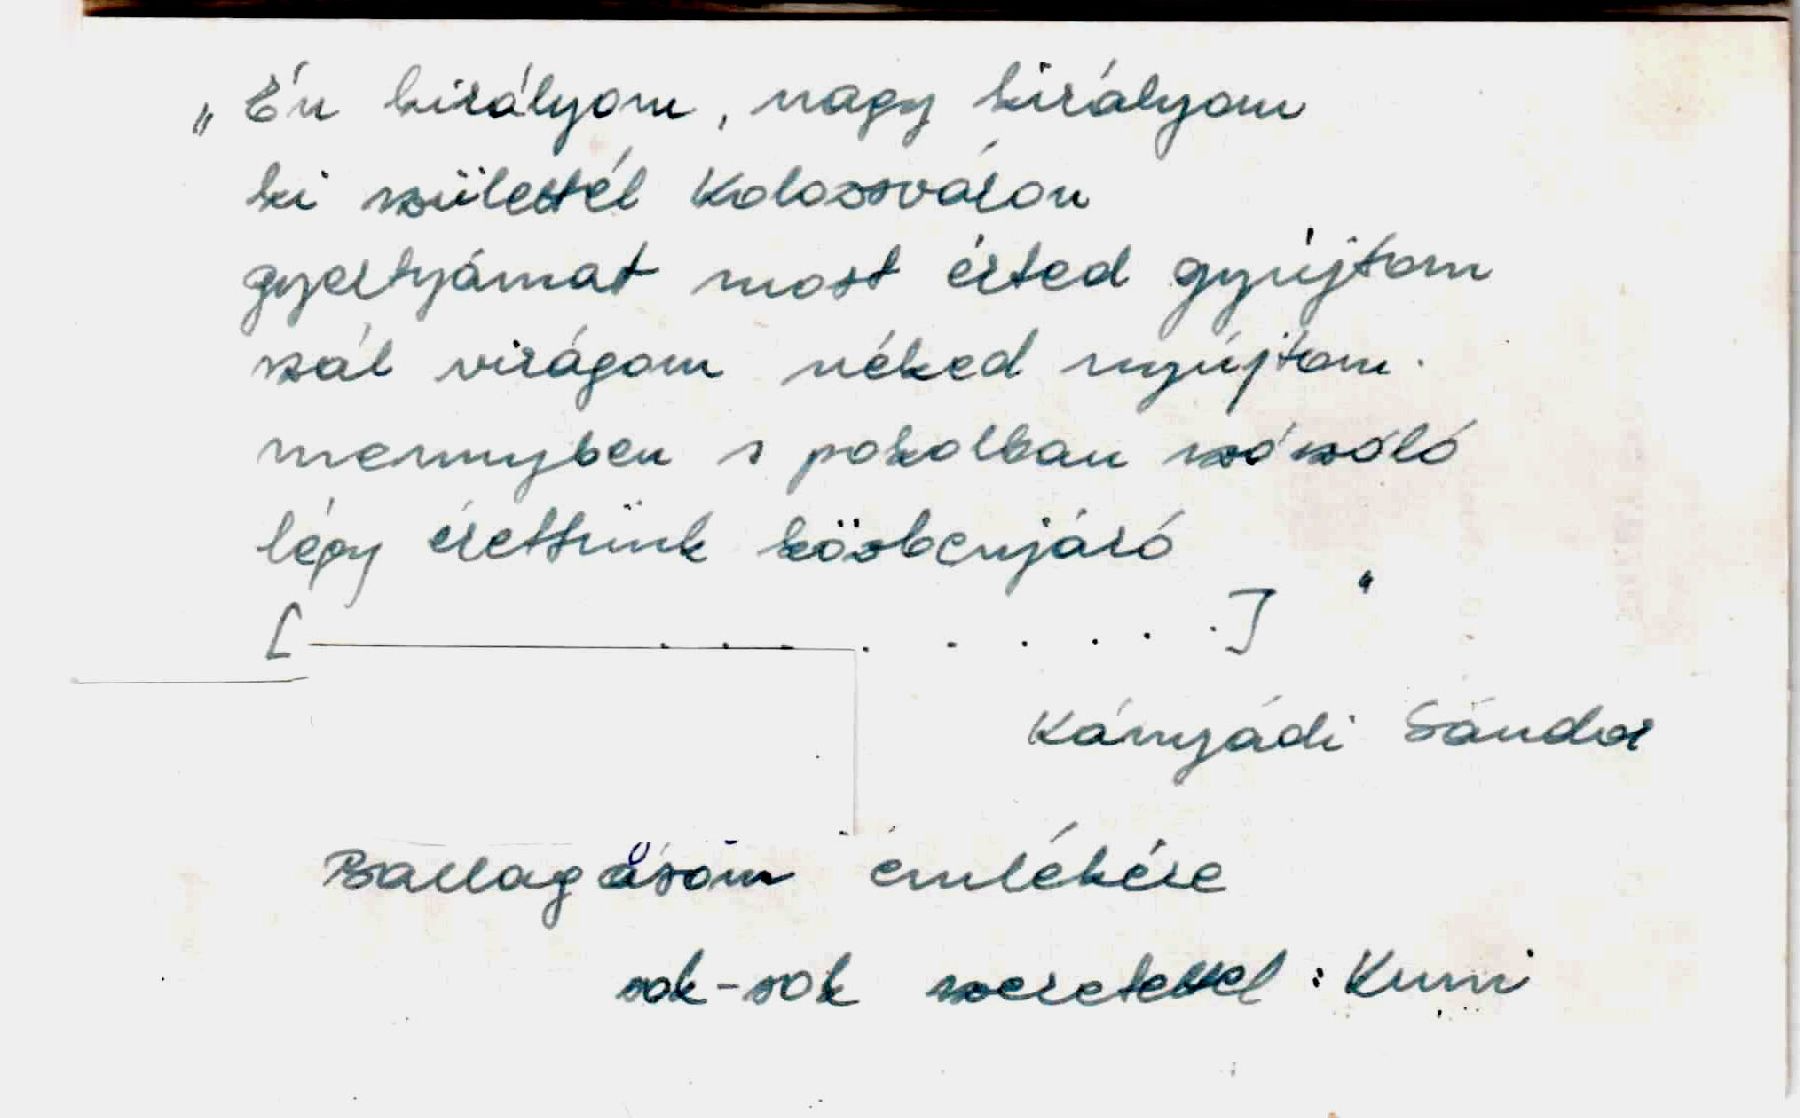 „Én királyom, nagy királyom
ki születtél Kolozsváron
gyertyámat most érted gyújtom
szál virágom néked nyújtom.
mennyben s pokolban szószóló
légy érettünk közbenjáró
[ . . . . . . . . ] "
Kányádi Sándor
Ballagásom emlékére
sok-sok szeretettel: Kumi